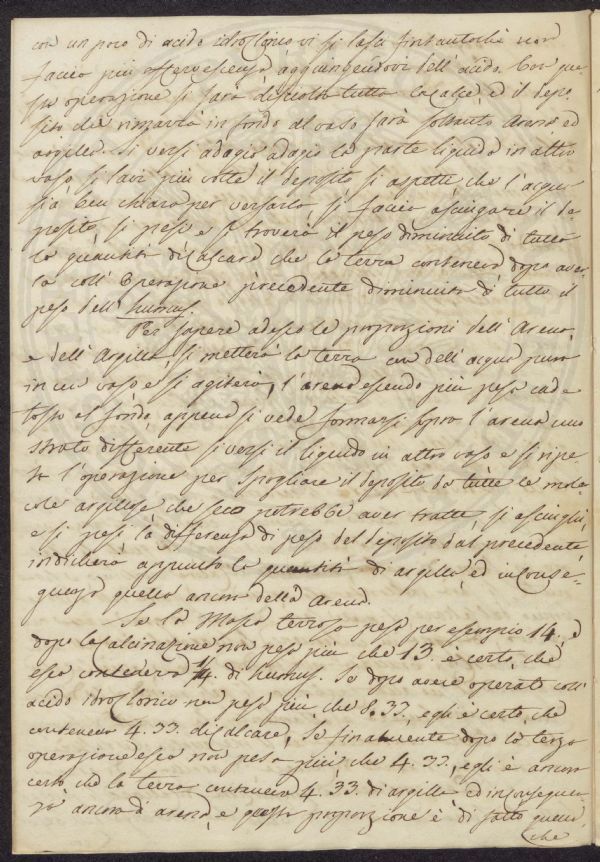 con un poco di acido idroclorico vi si lasci fintantochè non
faccia più effervescenza aggiungendovi dell'acido. Con que-
sta operazione si sarà disciolta tutta la calce, ed il depo-
sito che rimarrà in fondo al vaso sarà soltanto Arena, ed
argilla. Si versi adagio adagio la parte liquida in altro
vaso, si lavi più volte il deposito, si aspetti che l'acqua
sia ben chiara per versarla, si faccia asciugare il de-
posito, si pesi e si troverà il peso diminuito di tutta
la quantità di Calcare che la terra conteneva dopo aver-
la coll'Operazione precedente diminuita di tutto il
peso dell'humus.
Per sapere adesso le proporzioni dell'Arena,
e dell'Argilla, si metterà la terra con dell'acqua pura
in un vaso e si agiterà, l'arena essendo più pesa cade
tosto al fondo, appena si vede formarsi sopra l'arena uno
strato differente si versi il liquido in altro vaso e si ripe-
ta l'operazione per spogliare il deposito da tutte le mole-
cole argillose che seco potrebbe aver tratte, si asciughi,
e si pesi la differenza di peso del deposito dal precedente,
indicherà appunto la quantità di argilla, ed in conse-
guenza quella ancora della Arena.
Se la Massa terrosa pesa per esempio 14, e
dopo la Calcinazione non pesa più che 13. è certo, che
essa conteneva 1/14. di humus. Se dopo avere operato coll'
acido idroclorico non pesa più che 8.33., egli è certo, che
conteneva 4.33. di calcare, Se finalmente dopo la terza
operazione essa non pesa più che 4.33., egli è ancora
certo, che la terra conteneva 4.33. di argilla ed in conseguen-
za ancora di arena, e questa proporzione è di fatto quella
che